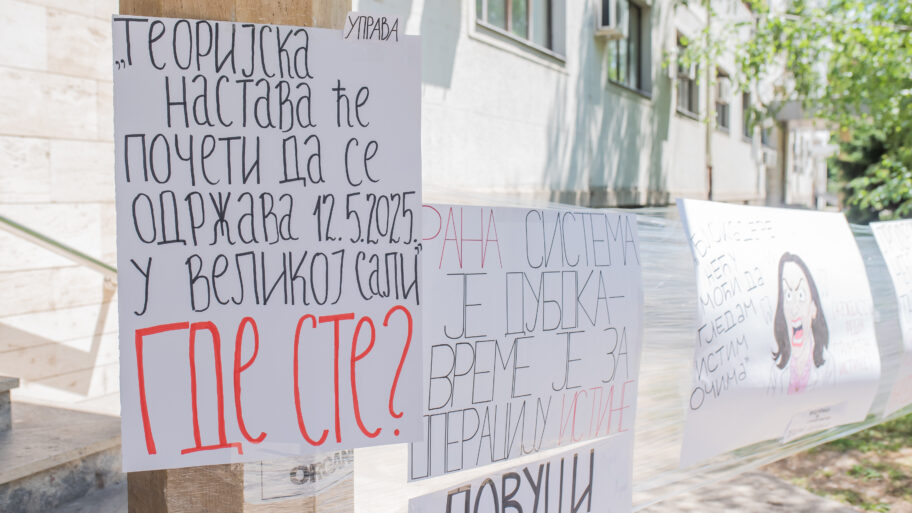 УПРАВА
„ТЕОРИЈСКА
НАСТАВА ЋЕ
ПОЧЕТИ ДА СЕ
ОДРЖАВА 12.5.2025.
У ВЕЛИКОЈ САЛИ"
ГДЕ СТЕ?
РАНА СИСТЕМА
ЈЕ ДУБОКА-
ВРЕМЕ ЈЕ ЗА
ОПЕРАЦИЈУ ИСТИНЕ
ПОВУЦИ
НЕЋУ
МОЋИ ДА
ГЛЕДАМ
ИСТИМ
ОЧИМА"